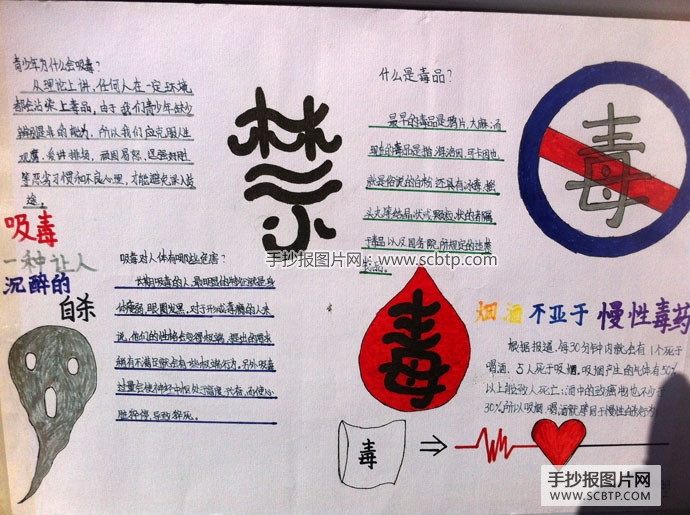 青少年为什么会吸毒?
从理论上讲,任何人在一定环境
都会沾染上毒品,由于我们青少年缺少
辨别是非的能力,所以我们应克服人生
观腐、会讲排场、顽固易怒、逞强好胜
等恶劣习惯和不良心理,才能避免误入歧
途。
禁
什么是毒品?
最早的毒品是鸦片、大麻;而
现在的毒品是指海洛因、可卡因也
就是俗说的白粉
毒品以及国务院所规定的违禁
毒品。
毒
吸毒
一种让人
沉醉的
自杀
吸毒对人体有哪些危害?
长期吸毒的人,最明显的特征就是身
体瘦弱,眼圈发黑,对于形成毒瘾的人来
说,他们的性格会变得极端,提出的需求
稍有不满足就会有些极端行为,另外吸毒
过量会使神经中枢处于高度兴奋,而使心
脏猝停,导致猝死。
手抄报图片网:www.scbtp.com
毒
烟酒不亚于慢性毒药
根据报道,每30分钟内就会有1个死于
喝酒,占人死于吸烟,吸烟产生的气体有50%
以上能致人死亡;酒中的致癌物也不少于
30%所以吸烟、喝酒就等同于慢性
毒
手抄报图片网
WWW.SCBTP.COM